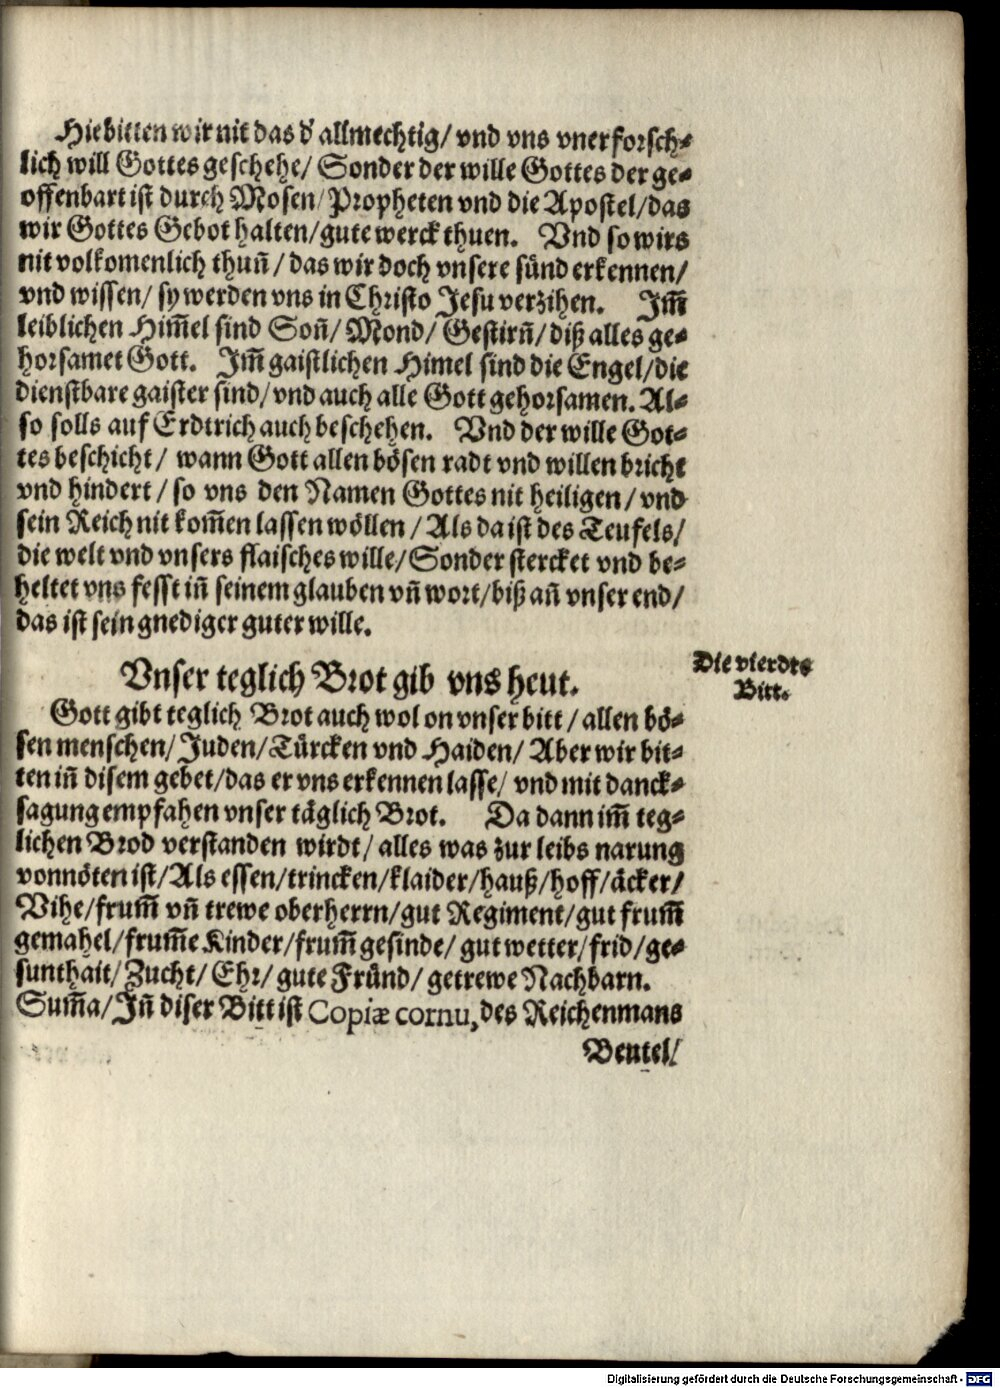 Hie bitten wir nit das d' allmechtig/ vnd vns vnerforsch⸗
lich will Gottes geschehe/ Sonder der wille Gottes der ge⸗
offenbart ist durch Mosen/ Propheten vnd die Apostel/ das
wir Gottes Gebot halten/ gute werck thuen. Vnd so wirs
nit volkomenlich thun̄/ das wir doch vnsere sünd erkennen/
vnd wissen/ sy werden vns in Christo Jesu verzihen. Jm̄
leiblichen Him̄el sind Son̄/ Mond/ Gestirn̄/ diß alles ge⸗
horsamet Gott. Jm̄ gaistlichen Himel sind die Engel/ die
dienstbare gaister sind/ vnd auch alle Gott gehorsamen. Al⸗
so solls auf Erdtrich auch beschehen. Vnd der wille Got⸗
tes beschicht/ wann Gott allen bösen radt vnd willen bricht
vnd hindert/ so vns den Namen Gottes nit heiligen/ vnd
sein Reich nit kom̄en lassen wöllen/ Als da ist des Teufels/
die welt vnd vnsers flaisches wille/ Sonder stercket vnd be⸗
heltet vns fesst in̄ seinem glauben vn̄ wort/ biß an̄ vnser end/
das ist sein gnediger guter wille.
Vnser teglich Brot gib vns heut.
Die vierdte
Bitt.
Gott gibt teglich Brot auch wol on vnser bitt/ allen bö⸗
sen menschen/ Juden/ Türcken vnd Haiden/ Aber wir bit⸗
ten in̄ disem gebet/ das er vns erkennen lasse/ vnd mit danck⸗
sagung empfahen vnser täglich Brot. Da dann im̄ teg⸗
lichen Brod verstanden wirdt/ alles was zur leibs narung
vonnöten ist/ Als essen/ trincken/ klaider/ hauß/ hoff/ äcker/
Vihe/ frum̄ vn̄ trewe oberherrn/ gut Regiment/ gut frum̄
gemahel/ frum̄e Kinder/ frum̄ gesinde/ gut wetter/ frid/ ge⸗
sunthait/ Zucht/ Ehr/ gute Fründ/ getrewe Nachbarn.
Sum̄a/ Jn̄ diser Bitt ist Copiæ cornu, des Reichenmans
Beutel/
Digitalisierung gefördert durch die Deutsche Forschungsgemeinschaft - DFG